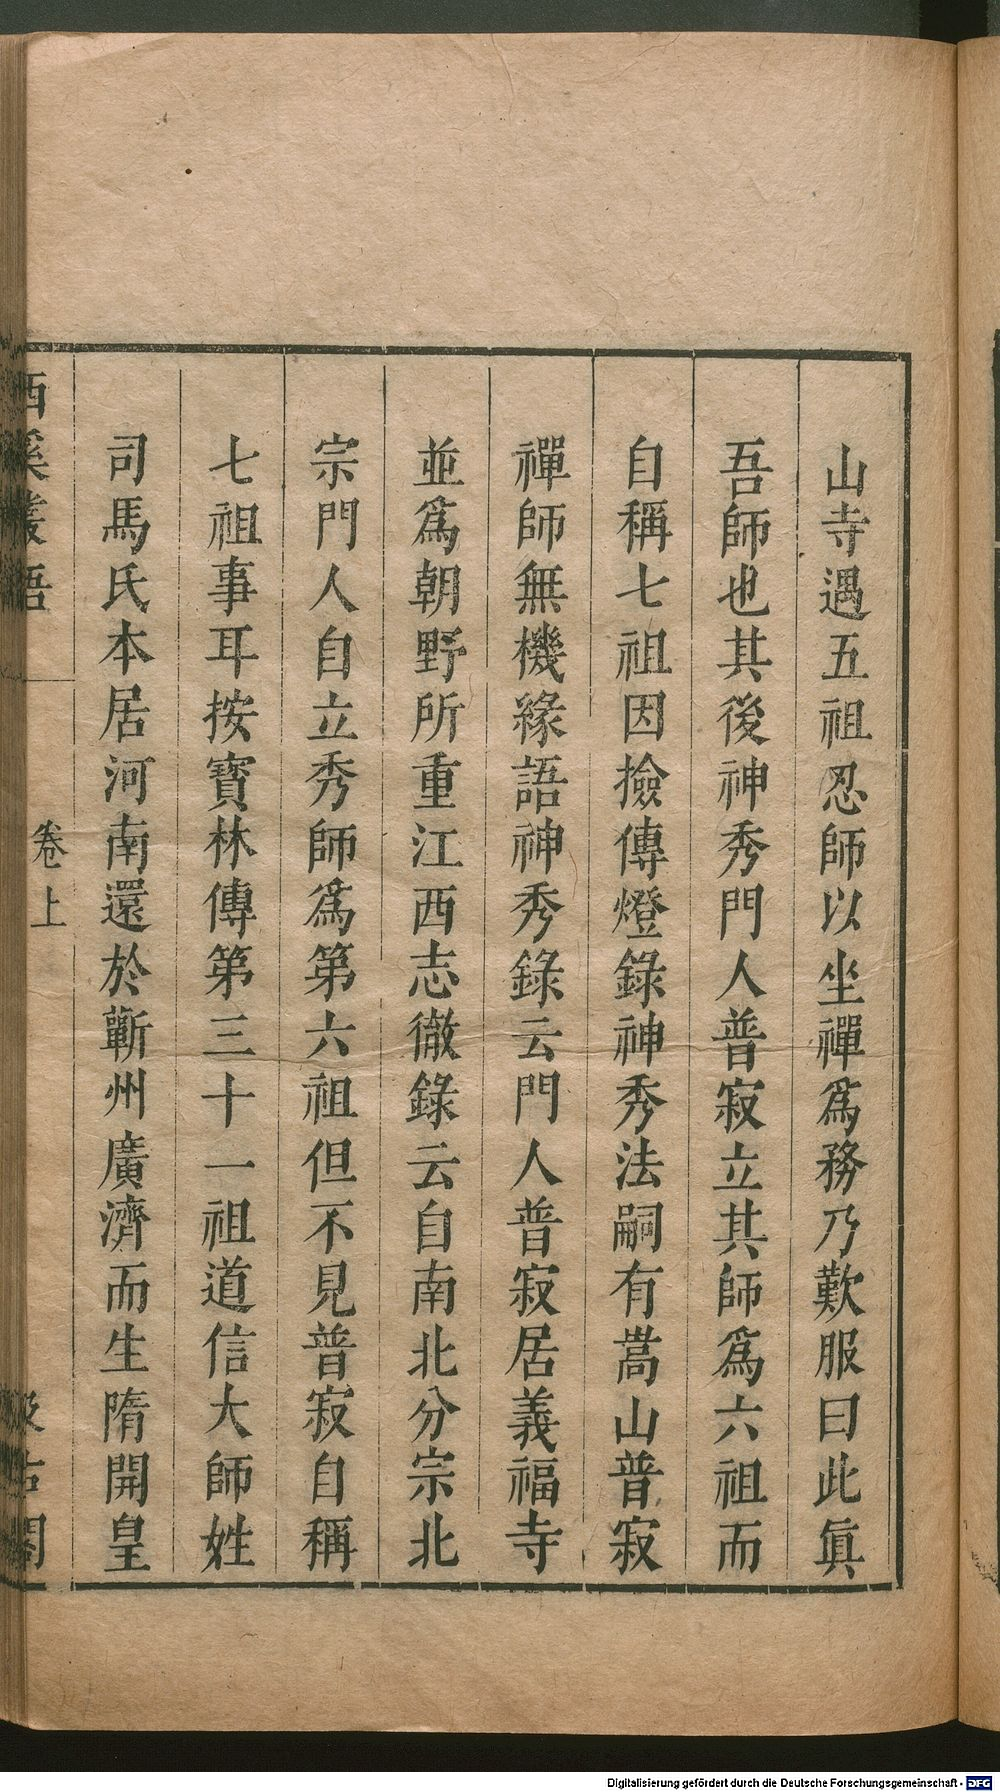 山寺遇五祖忍師以坐禪爲務乃歎服曰此眞
吾師也其後神秀門人普寂立其師爲六祖而
自稱七祖因撿傳燈錄神秀法嗣有嵩山普寂
禪師無機緣語神秀錄云門人普寂居義福寺
並爲朝野所重江西志徹錄云自南北分宗北
宗門人自立秀師爲第六祖但不見普寂自稱
七祖事耳按寶林傳第三十一祖道信大師姓
司馬氏本居河南還於蘄州廣濟而生隋開皇
西溪叢語 卷上 汲古閣
Digitalisierung gefördert durch die Deutsche Forschungsgemeinschaft - DFG